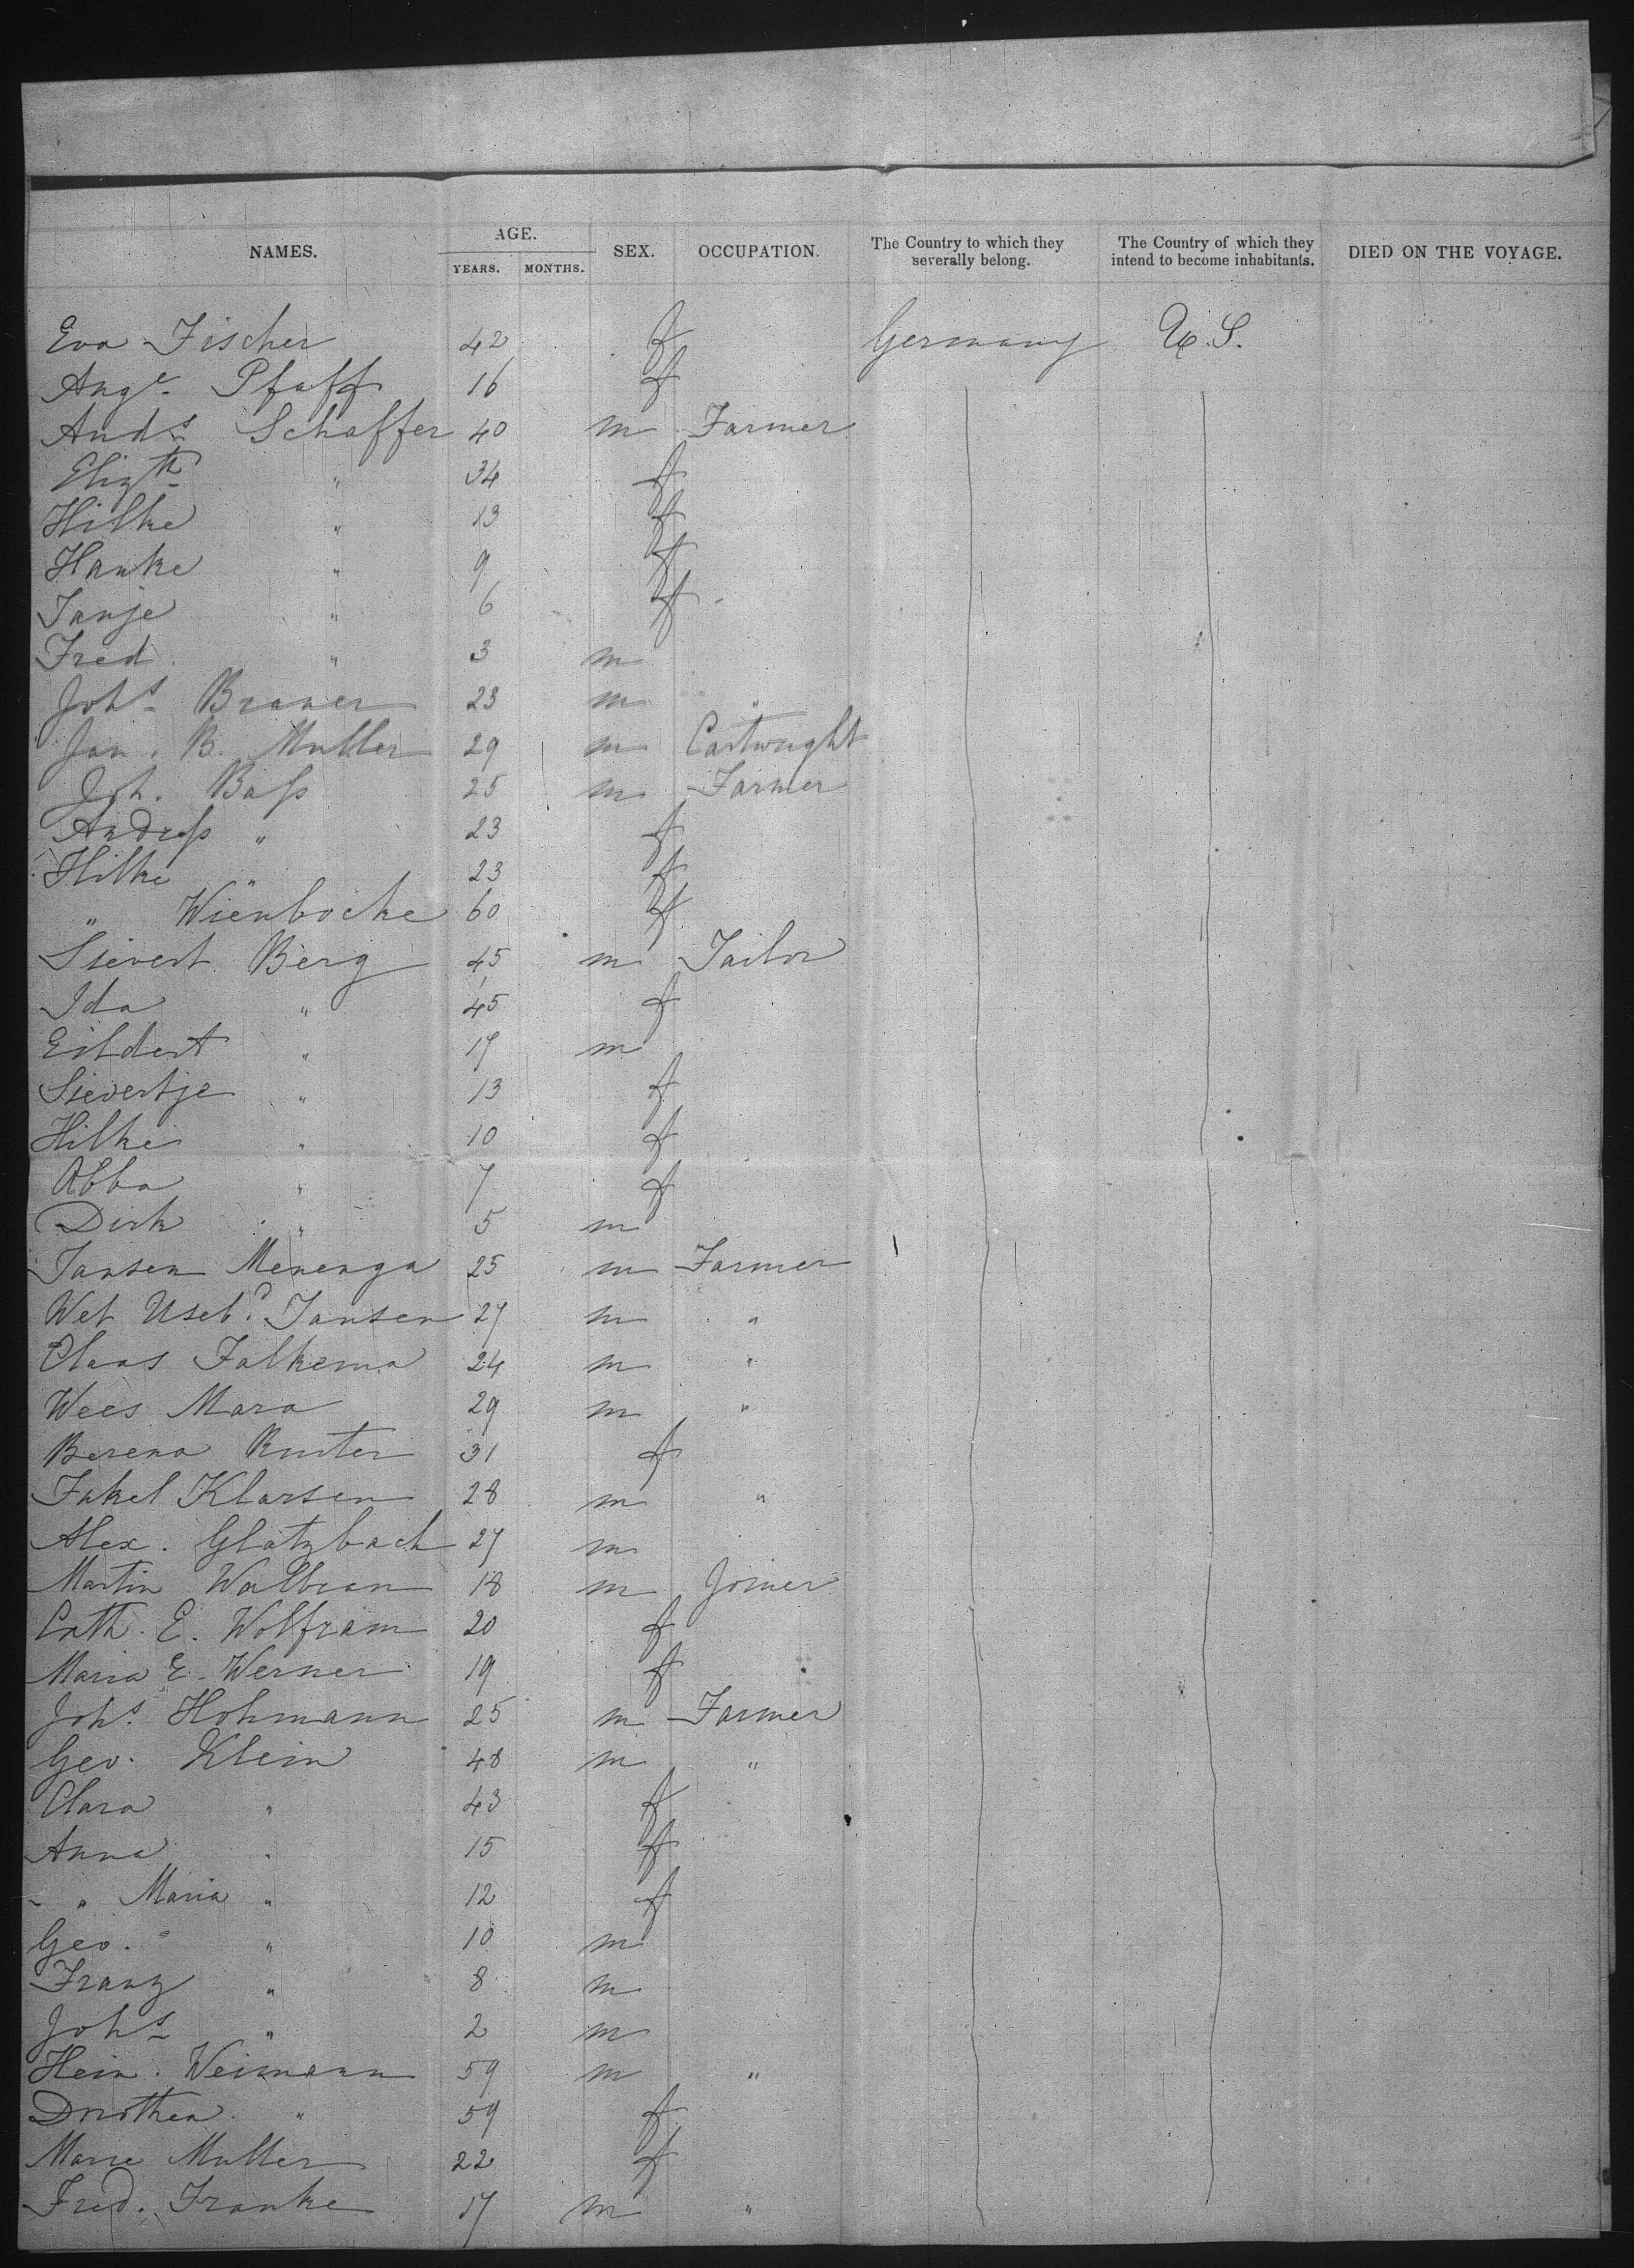 NAMES. AGE. YEARS. MONTHS. SEX. OCCUPATION. The Country to which they severally belong. The Country of which they intend to become inhabitants. DIED ON THE VOYAGE.
Eva Fischer 42 f Germany U.S.
Ang<sup>e</sup> Pfaff 16 f
And<sup>s</sup> Schaffer 40 m Farmer
Eliz<sup>th</sup> " 34 f
Hilke " 13 f
Hanke " 9 f
Janje " 6 f
Fred. " 3 m
Joh<sup>s</sup> Braner 23 m "
Jan. B. Muller 29 m Cartwright
Joh. Baſs 25 m Farmer
Andreſs " 23 f
Hilke " 23 f
" Wienbocke 60 f
Sievert Berg 45 m Tailor
Ida " 45 f
Eildert " 17 m
Sievertje " 13 f
Hilke " 10 f
Abba " 7 f
Dirk " 5 m
Jansen Menenga 25 m Farmer
Wet Useb. Jansen 27 m "
Claas Falkema 24 m "
Wees Mara 29 m "
Berena Ruiter 31 f
Fakel Klarsen 28 m "
Alex. Glatzbach 27 m
Martin Walbran 18 m Joiner
Cath. E. Wolfram 20 f
Maria E. Werner 19 f
Joh<sup>s</sup>. Hohmann 25 m Farmer
Geo. Klein 48 m "
Clara " 43 f
Anna " 15 f
" Maria " 12 f
Geo. " 10 m
Franz " 8 m
Joh<sup>s</sup> " 2 m
Hein. Weismann 59 m "
Dorothea " 59 f
Marie Muller 22 f
Fred. Franke 17 m "